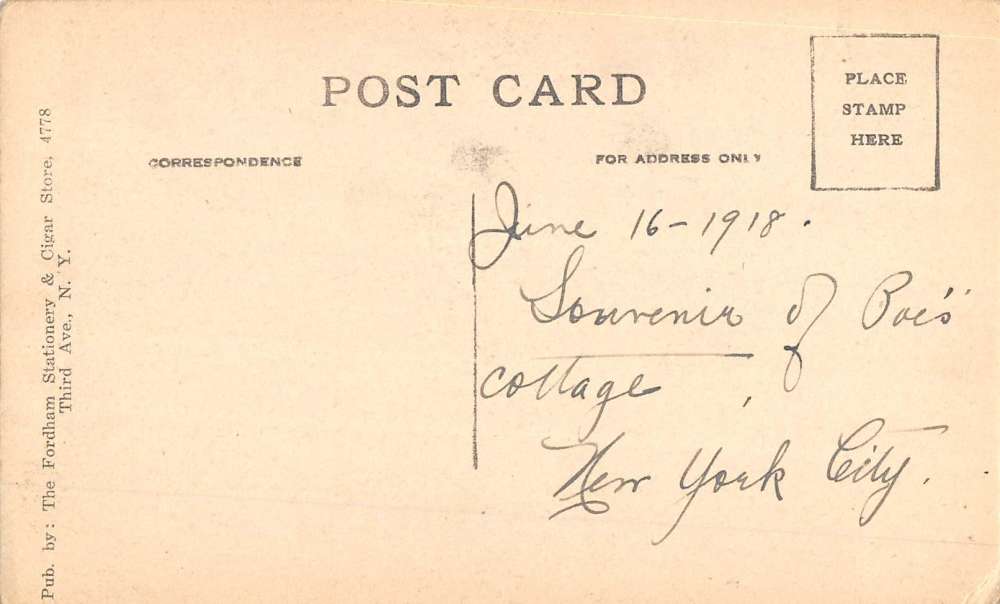 POST CARD
PLACE
STAMP
HERE
CORRESPONDENCE
FOR ADDRESS ONLY
June 16-1918.
Souvenir of Poe's
cottage,
New York City.
Pub. by: The Fordham Stationery & Cigar Store, 4778
Third Ave., N. Y.